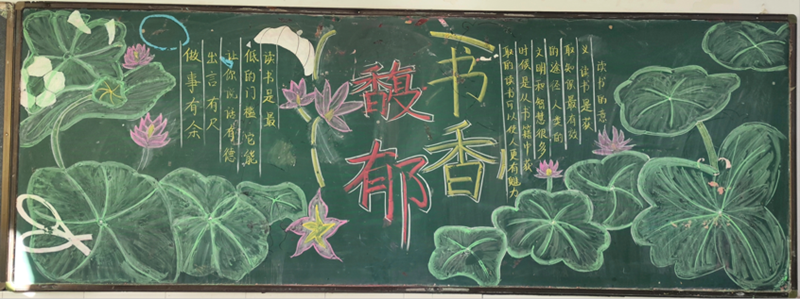 读书的意
义 读书是获
取知识最有效
的途径 人类的
文明和智慧很多
时候是从书籍中获
取的 读书可以使人更有魅力
书香
馥郁
读书是最
低的门槛 它能
让你说话有德
出言有尺
做事有余